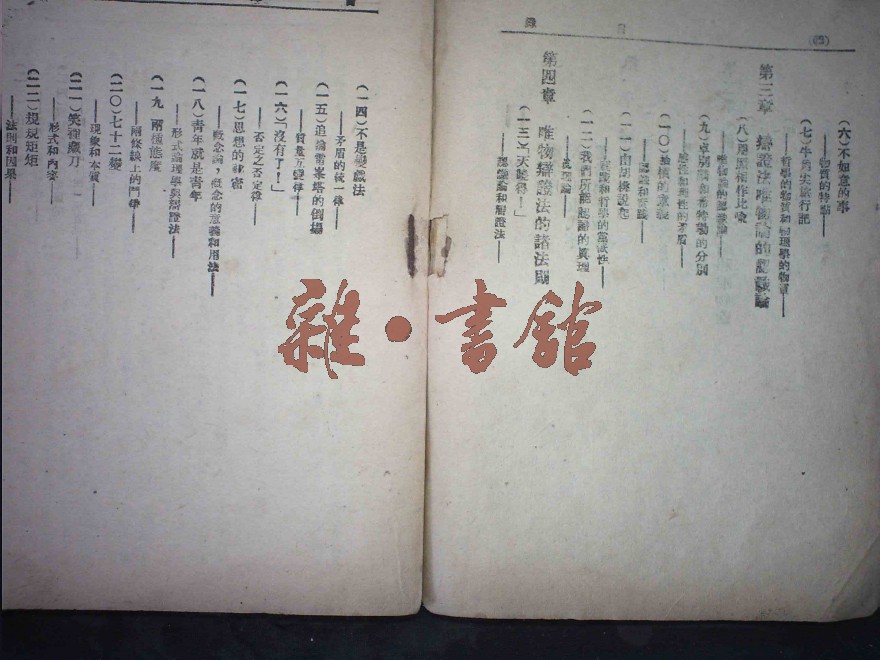 目錄
(2)
(六)不如意的事
——物質的特點——
(七)牛角尖旅行記
——哲學的物質和物理學的物質——
第三章 辯證法唯物論的認識論
(八)用照相作比喻
——唯物論的認識論——
(九)卓別麟和希特勒的分別
——感性和理性的矛盾——
(一〇)抽象的意義
——認識和實踐——
(一一)由胡桃說起
(一二)我們所能認識的真理
——真理論——
第四章 唯物辯證法的諸法則
(一三)「天曉得!」
——認識論和辯證法——
(一四)不是變戲法
——矛盾的統一律——
(一五)追論雷峯塔的倒塌
——質量互變律——
(一六)「沒有了!」
——否定之否定律——
(一七)思想的祕密
——概念論,概念的意義和用法——
(一八)青年就是青年
——形式論理學與辯證法——
(一九)兩種態度
——兩條線上的鬥爭——
(二〇)七十二變
——現象和本質——
(二一)笑裡藏刀
——形式和內容——
(二二)規規矩矩
——法則和因果——
雜·書館